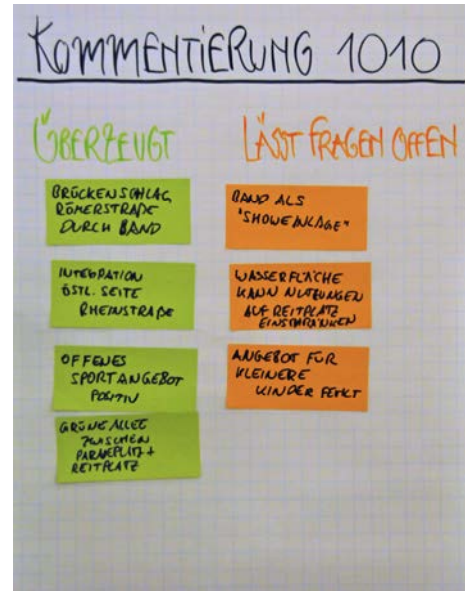 KOMMENTIERUNG 1010
ÜBERZEUGT
BRÜCKENSCHLAG
RÖMERSTRAßE
DURCH BAND
INTEGRATION
ÖSTL. SEITE
RHEINSTRAßE
OFFENES
SPORTANGEBOT
POSITIV
GRÜNE ALLEE
ZWISCHEN
PARADEPLATZ+
REITPLATZ
LÄSST FRAGEN OFFEN
BAND ALS
"SHOWEINLAGE"
WASSERFLÄCHE
KANN NUTZUNGEN
AUF REITPLATZ
EINSCHRÄNKEN
ANGEBOT FÜR
KLEINERE
KINDER FEHLT